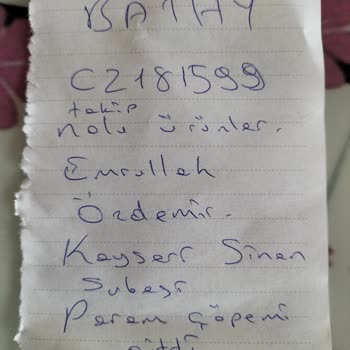 BATHY
C2181599
takip
nolu ürünler.
Emrullah
Özdemir.
Kayseri Sinan
Şubesi
Param çöpemi
gitti